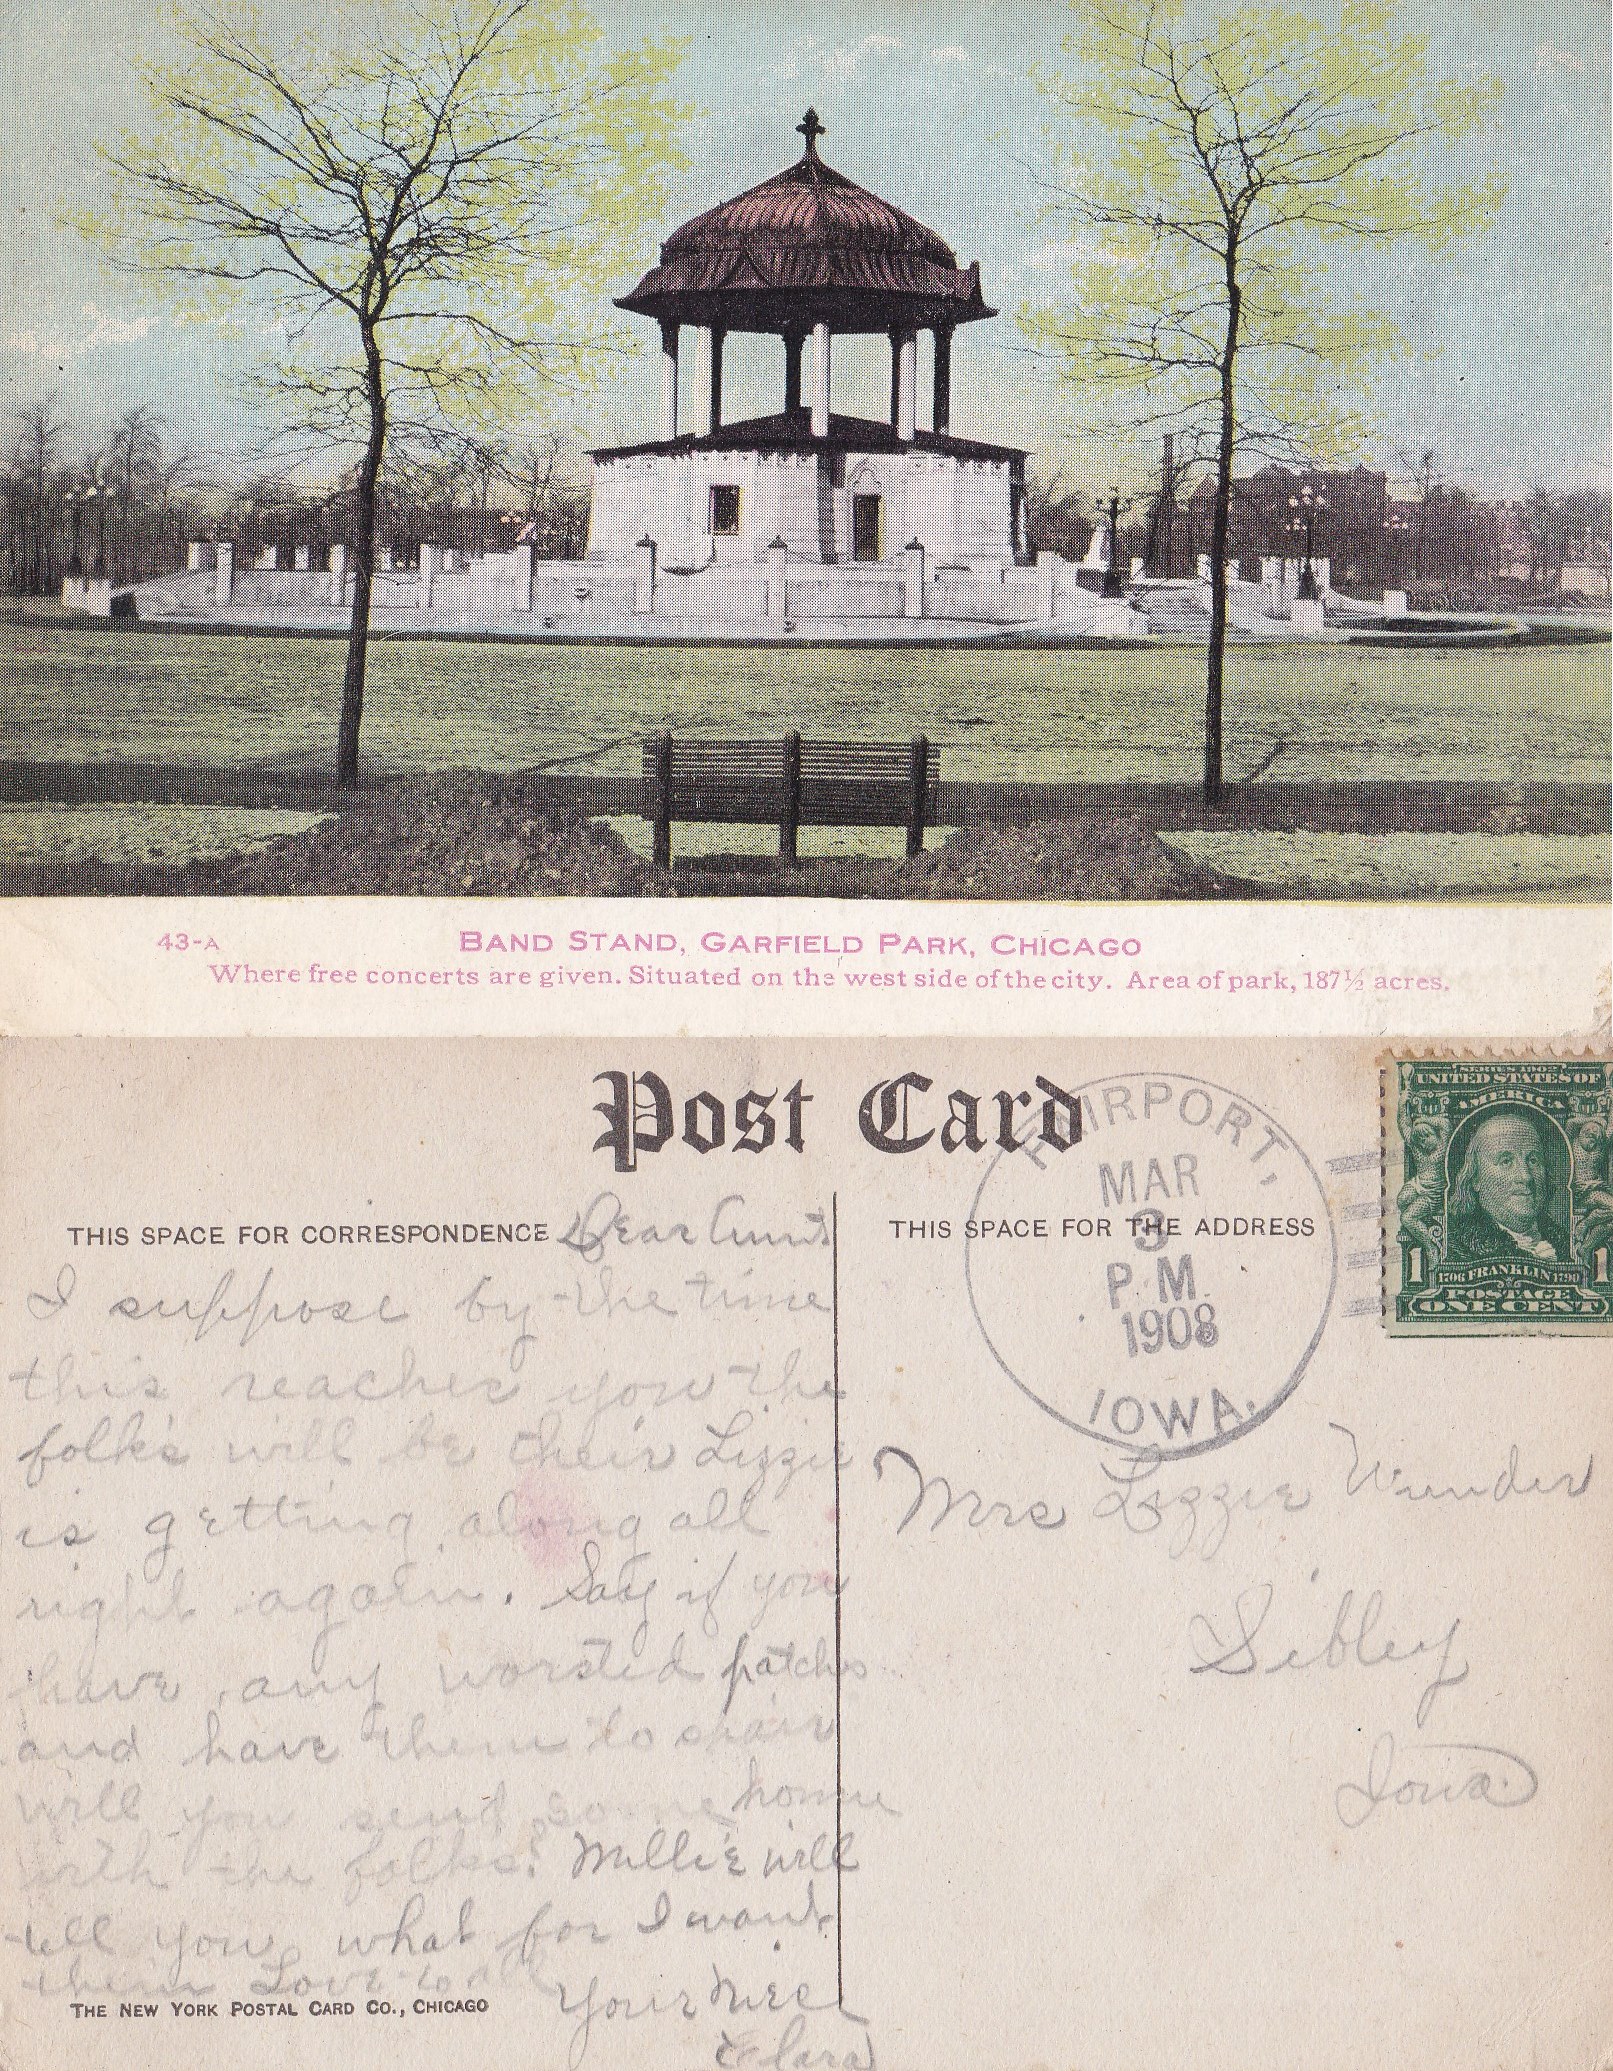 43-A BAND STAND, GARFIELD PARK, CHICAGO
Where free concerts are given. Situated on the west side of the city. Area of park, 187½ acres.
Post Card
THIS SPACE FOR CORRESPONDENCE
Dear Aunt
I suppose by the time
this reaches you the
folks will be their Lizzie
is getting along all
right again. Say if you
have any worsted patches
and have them to spair
will you send some home
with the folks. Millie will
tell you what for I want
them Love to all
Your Niece
Clara
THE NEW YORK POSTAL CARD CO., CHICAGO
THIS SPACE FOR THE ADDRESS
FAIRPORT,
MAR
3
P.M.
1908
IOWA.
SERIES 1902
UNITED STATES OF
AMERICA
1 1
1706 FRANKLIN 1790
POSTAGE
ONE CENT
Mrs Lizzie Wunder
Sibley
Iowa.